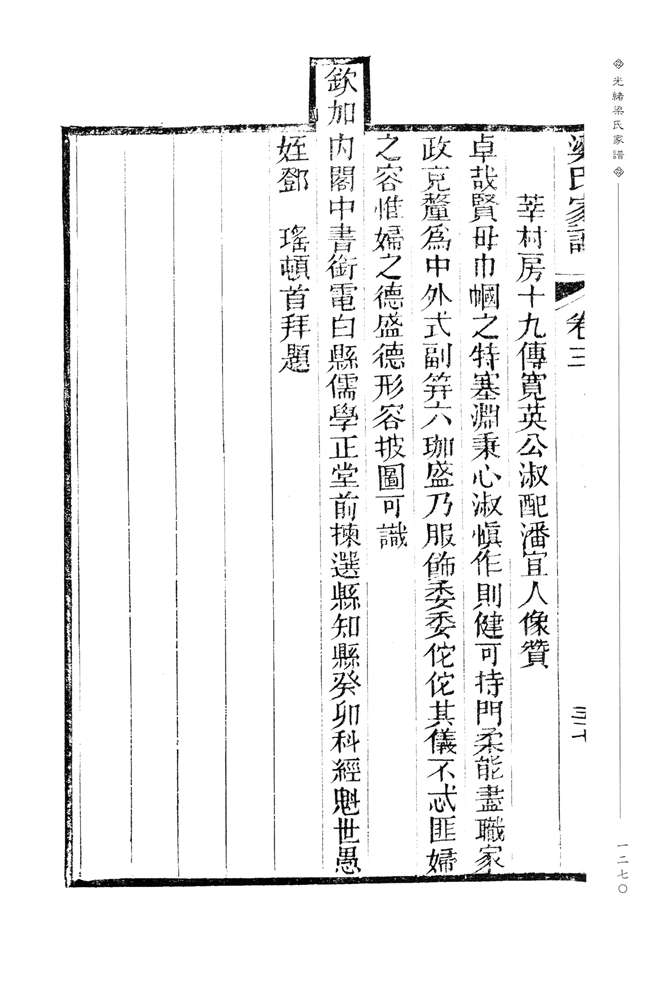 光緒梁氏家譜
一二七〇
梁氏家譜 卷三
莘村房十九傳寬英公淑配潘宜人像贊
卓哉賢母巾幗之特塞淵秉心淑愼作則健可持門柔能盡職家
政克釐爲中外式副笄六珈盛乃服飾委委佗佗其儀不忒匪婦
之容惟婦之德盛德形容披圖可識
欽加內閣中書銜電白縣儒學正堂前揀選縣知縣癸卯科經魁世愚
姪鄧 瑤頓首拜題